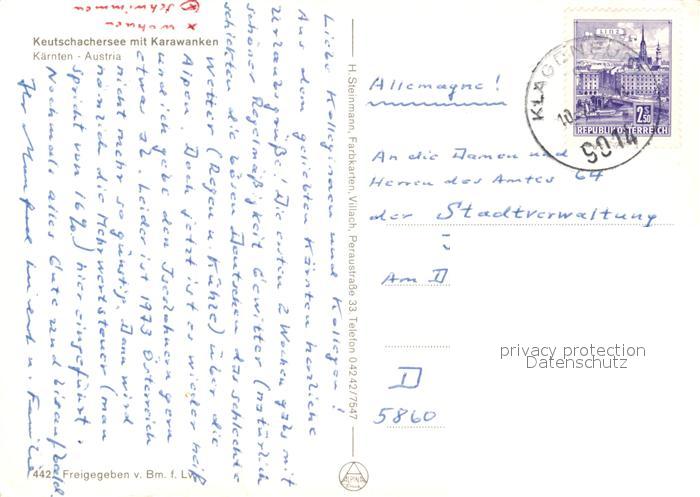 x wohnen
⊗ schwimmen
Keutschachersee mit Karawanken
Kärnten - Austria
Liebe Kolleginnen und Kollegen!
Aus dem geliebten Kärnten herzliche
Urlaubsgrüße! Die ersten 2 Wochen gab's mit
schöner Regelmäßigkeit Gewitter (natürlich
schickten die bösen Deutschen das schlechte
Wetter (Regen u. Kühle) über die
Alpen. Doch jetzt ist es wieder heiß
und ich gebe den
etwas ab. Leider ist 1973 Österreich
nicht mehr so günstig. Dann wird
nämlich die Mehrwertsteuer (man
spricht von 16%) hier eingeführt.
Nochmals alles Gute und bis auf bald.
Ihr Manfred u. Familie
442 Freigegeben v. Bm. f. Lv.
H. Steinmann, Farbkarten, Villach, Peraustraße 33 Telefon 04242/7547
ALPINA
LINZ
2 S 50
REPUBLIK ÖSTERREICH
KLAGENFURT
10.
9014
Allemagne!
An die Damen und
Herren des Amtes 64
der Stadtverwaltung
Am D
D
5860
privacy protection
Datenschutz